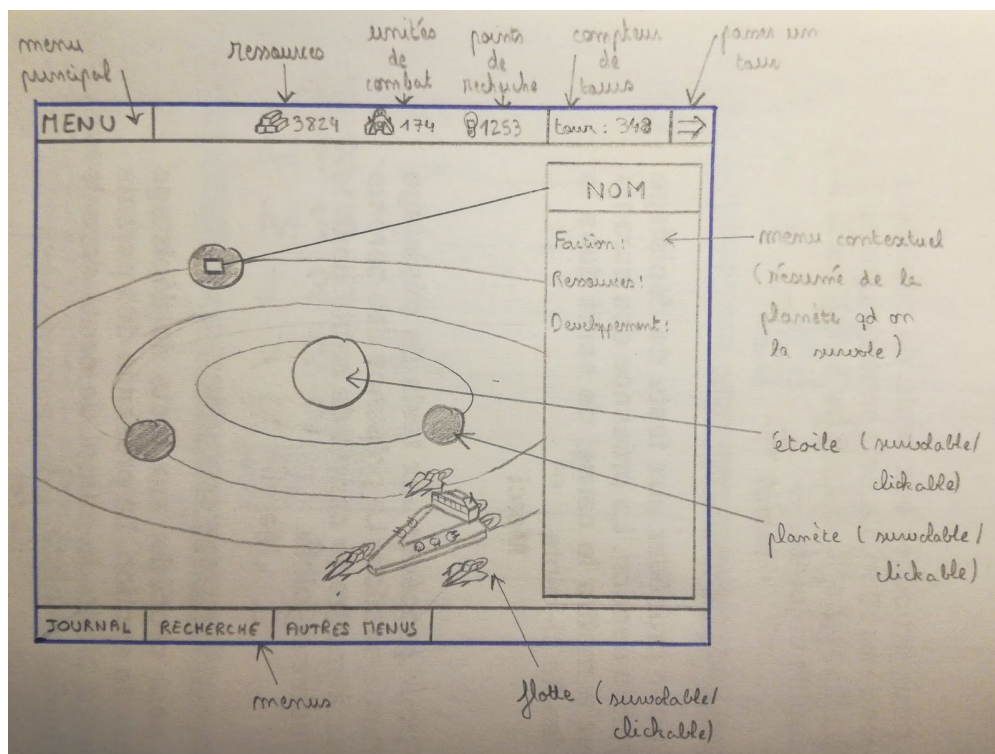 menu
principal
ressources
unités
de
combat
points
de
recherche
compteur
de
tours
passer un
tour
MENU
3824
174
1253
tour : 348
NOM
Faction :
Ressources :
Developpement :
menu contextuel
(résumé de la
planète qd on
la survole)
étoile (survolable/
clickable)
planète (survolable/
clickable)
JOURNAL
RECHERCHE
AUTRES MENUS
menus
flotte (survolable/
clickable)